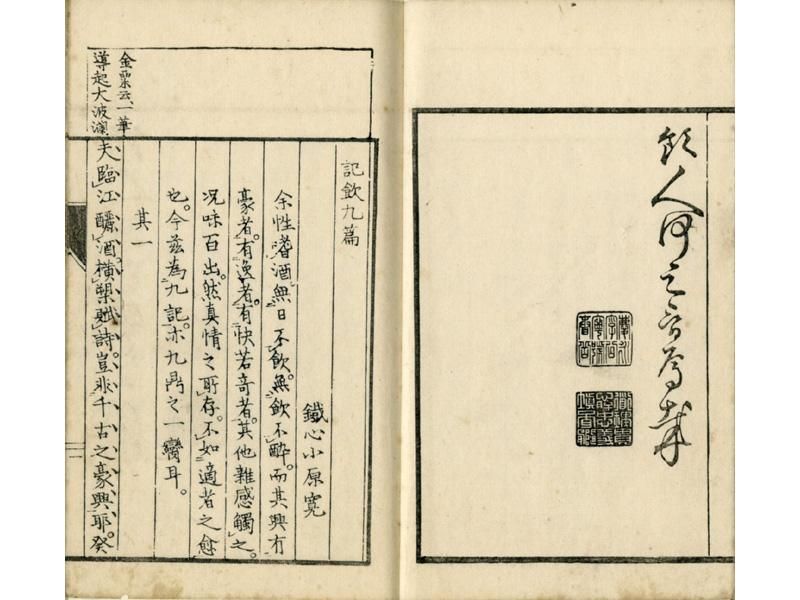 記飲九篇
鐵心小原寬
余性嗜酒無日不飲。無飲不醉。而其興有
豪者。有逸者。有快若奇者。其他雜感觸之。
况味百出。然真情之所存。不如適者之愈
也。今茲為九記。亦九鼎之一臠耳。
其一
金粟云、一華
導起大波瀾
夫臨江釃酒。橫槊賦詩。豈非千古之豪興耶。癸